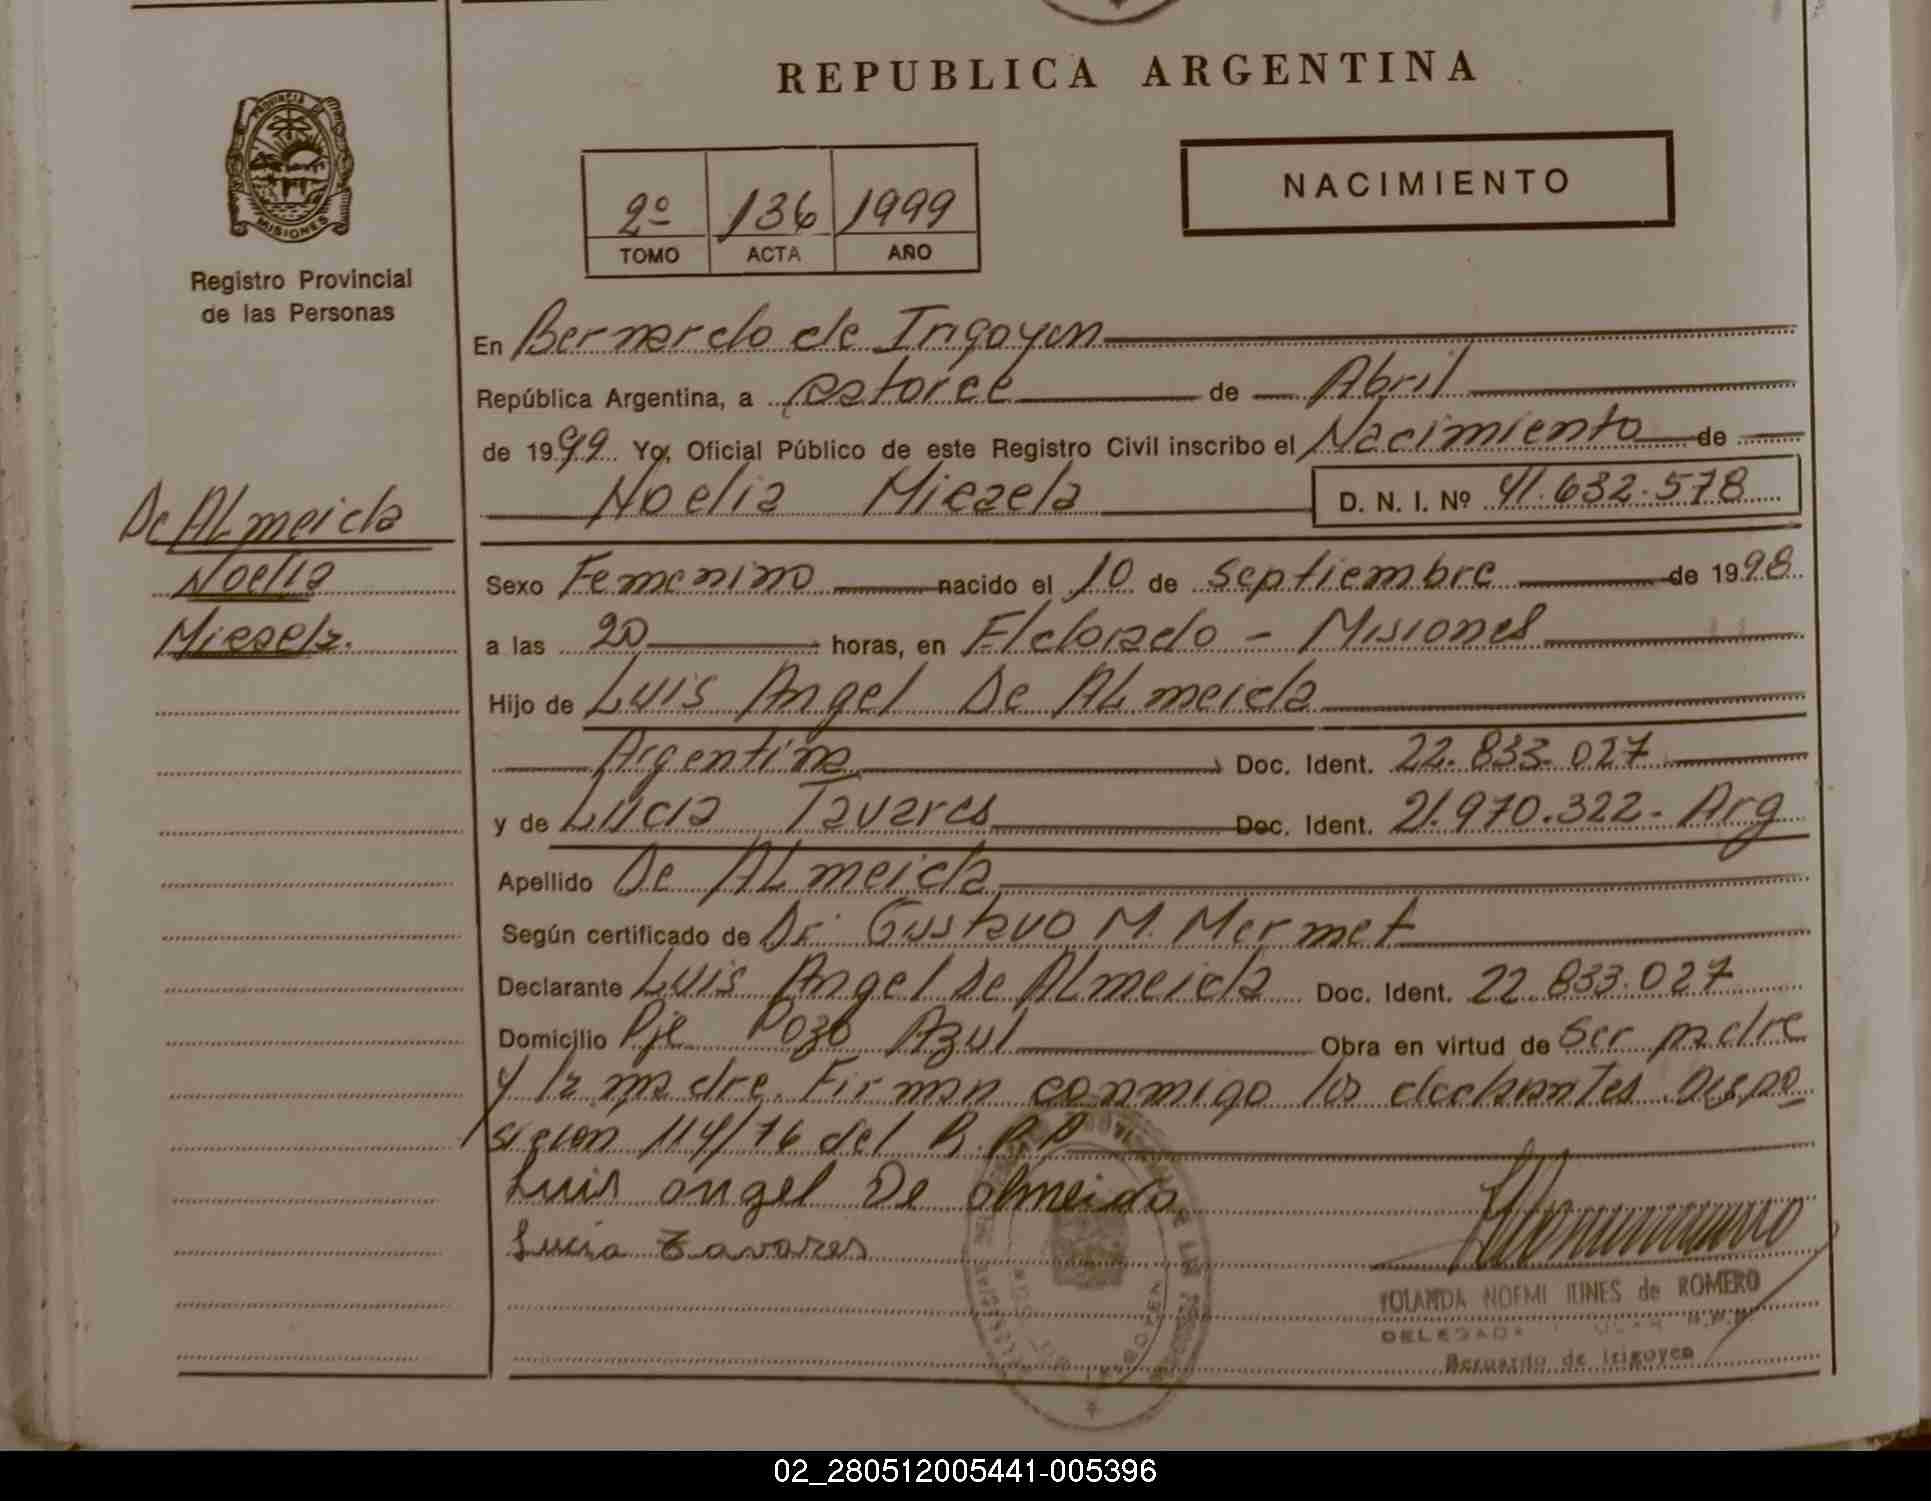 REPUBLICA ARGENTINA
PROVINCIA DE
MISIONES
Registro Provincial
de las Personas
2º 136 1999
TOMO ACTA AÑO
NACIMIENTO
En Bernardo de Irigoyen
República Argentina, a catorce de Abril
de 1999 Yo, Oficial Público de este Registro Civil inscribo el Nacimiento de
Noelia Micaela D. N. I. Nº 41.632.578
De ALmeida
Noelia
Micaela.
Sexo Femenino nacido el 10 de Septiembre de 1998
a las 20 horas, en Eldorado - Misiones
Hijo de Luis Angel De ALmeida
Argentina Doc. Ident. 22.833.027
y de Lucia Tavares Doc. Ident. 21.970.322- Arg
Apellido De ALmeida
Según certificado de Dr. Gustavo M. Mermet
Declarante Luis Angel De ALmeida Doc. Ident. 22.833.027
Domicilio Pje Pozo Azul Obra en virtud de Ser padre
y la madre. Firman conmigo los declarantes Dispo
sicion 114/76 del R.P.P
Luis angel De almeida
Lucia Tavares
YOLANDA NOEMI de ROMERO
DELEGADA
Bernardo de Irigoyen
02_280512005441-005396